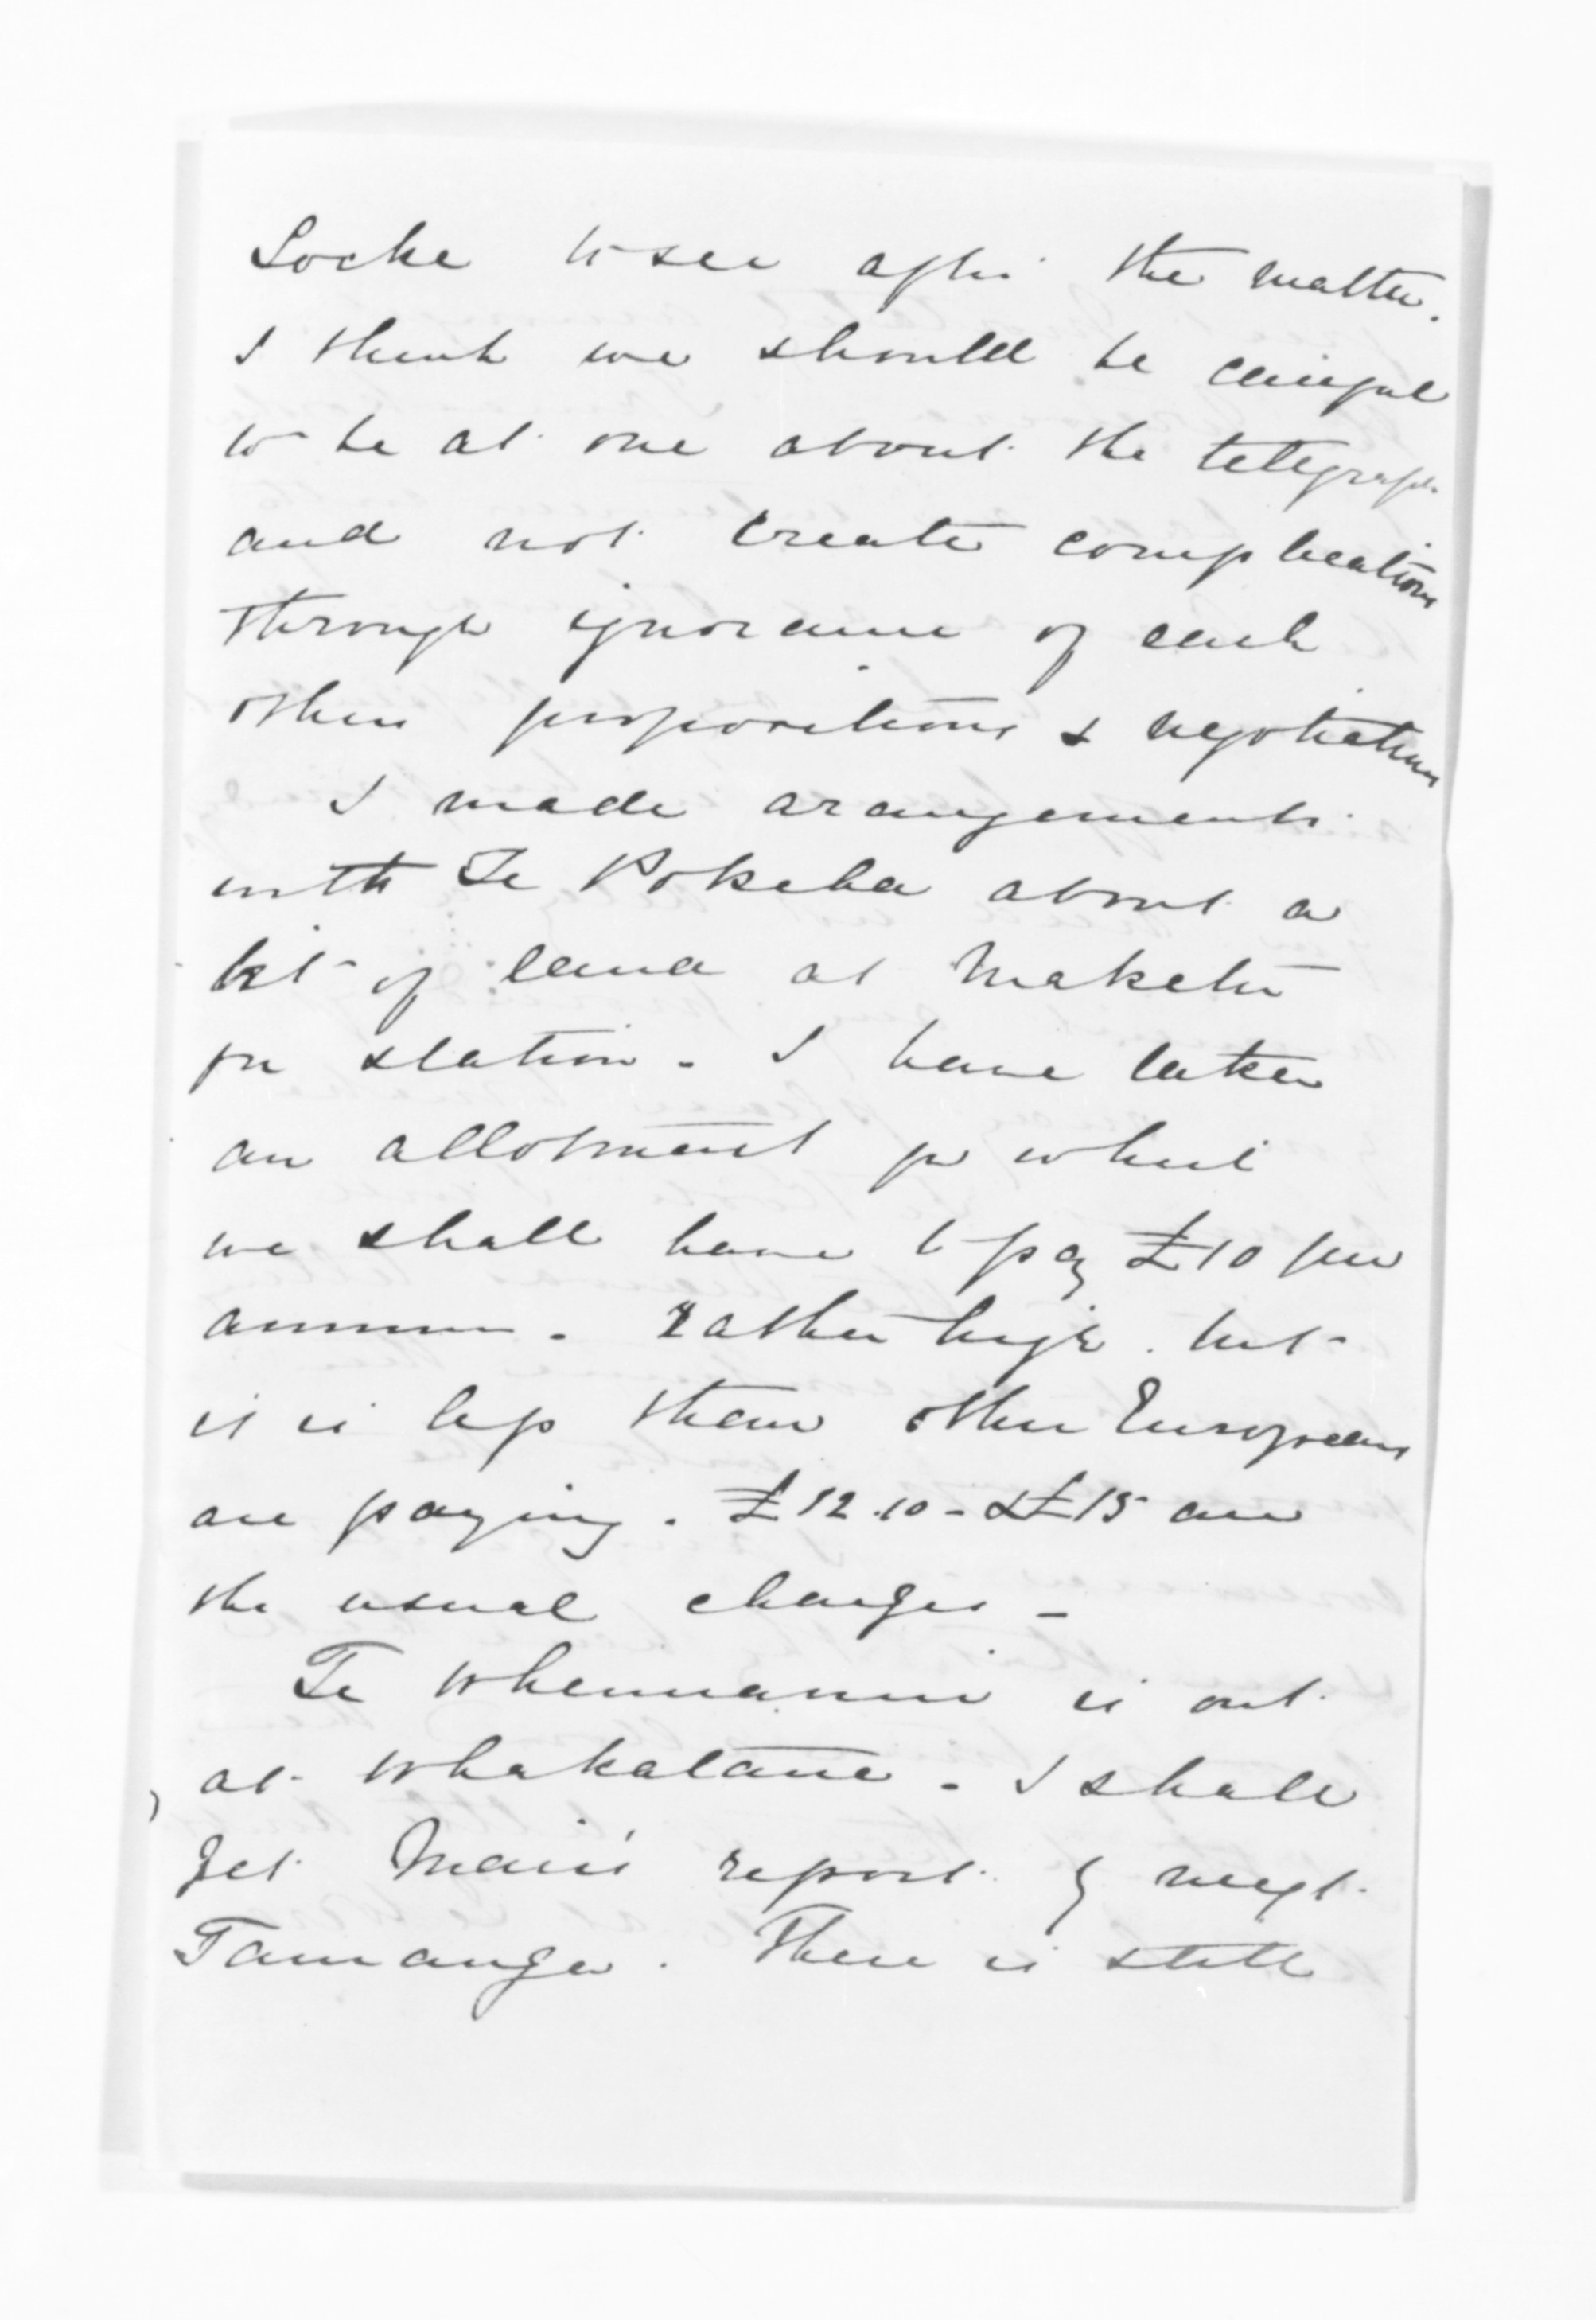 Locke to see after the matter.
I think we should be careful
to be at one about the telegraph
and not create complications
through ignorance of each
others propositions & negotiations
I made arangements
with Te Pokiha about a
bit of land at Maketu
for station - I have taken
an allotment for which
we shall have to pay £10 per
annum - rather high. but
it is less than other Europeans
are paying. £12.10 - & £15 are
the usual charges -
Te Wheuuanui is out
at Whakatane - I shall
get Mair's report by next
Tauranga. There is still